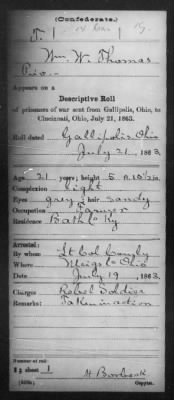 (Confederate.)
T. | 14 Cav. | Ky.
Wm. W. Thomas
Priv.
Appears on a
Descriptive Roll
of prisoners of war sent from Gallipolis, Ohio, to
Cincinnati, Ohio, July 21, 1863.
Roll dated Gallipolis, Ohio
July 21, 1863.
Age 21 years; height 5 ft. 10½ in.
Complexion light
Eyes grey; hair sandy
Occupation Farmer
Residence Bath Co Ky
Arrested:
By whom Lt Col
Where Meigs Co Ohio
Date July 19, 1863.
Charges Rebel Soldier
Remarks: Taken in action
Number of roll:
sheet 1
Copyist.